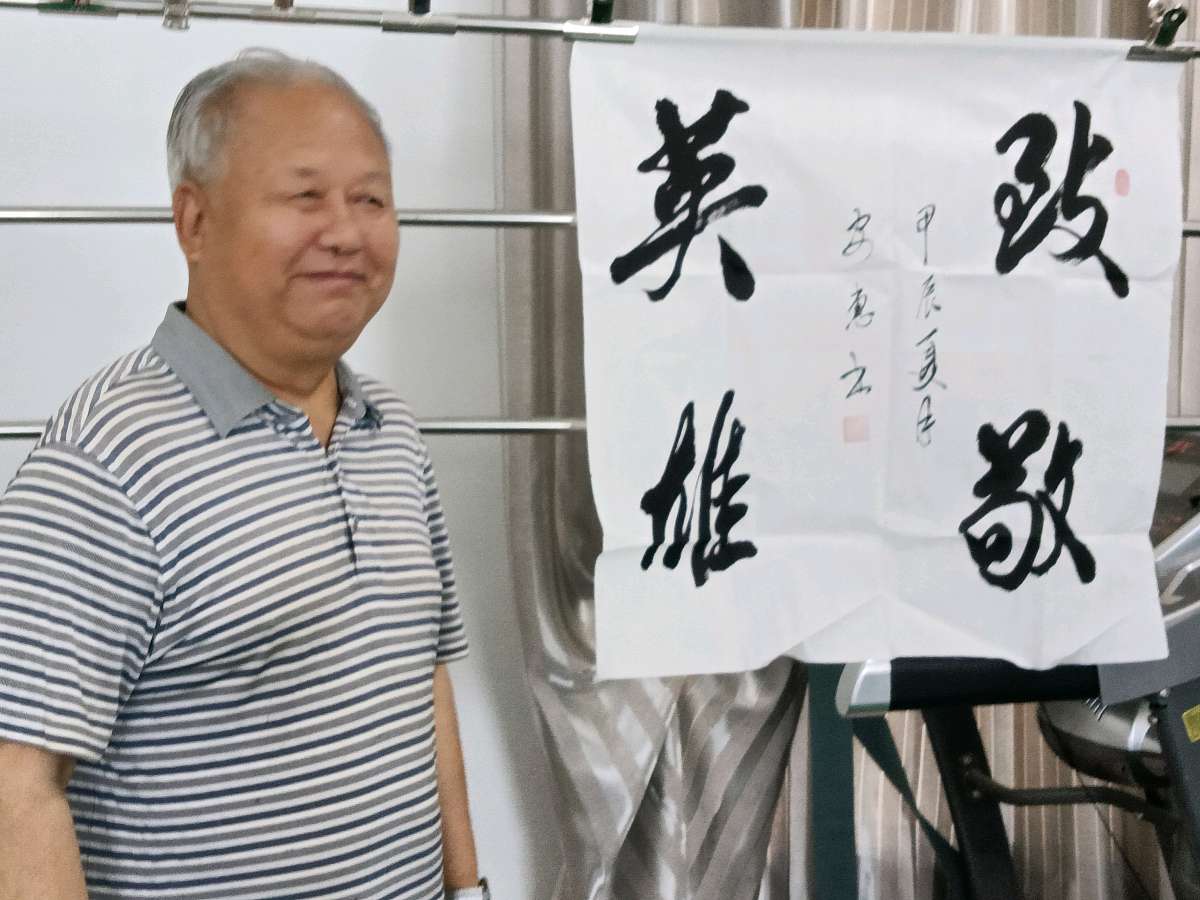 致敬
英雄
甲辰夏月
安惠立